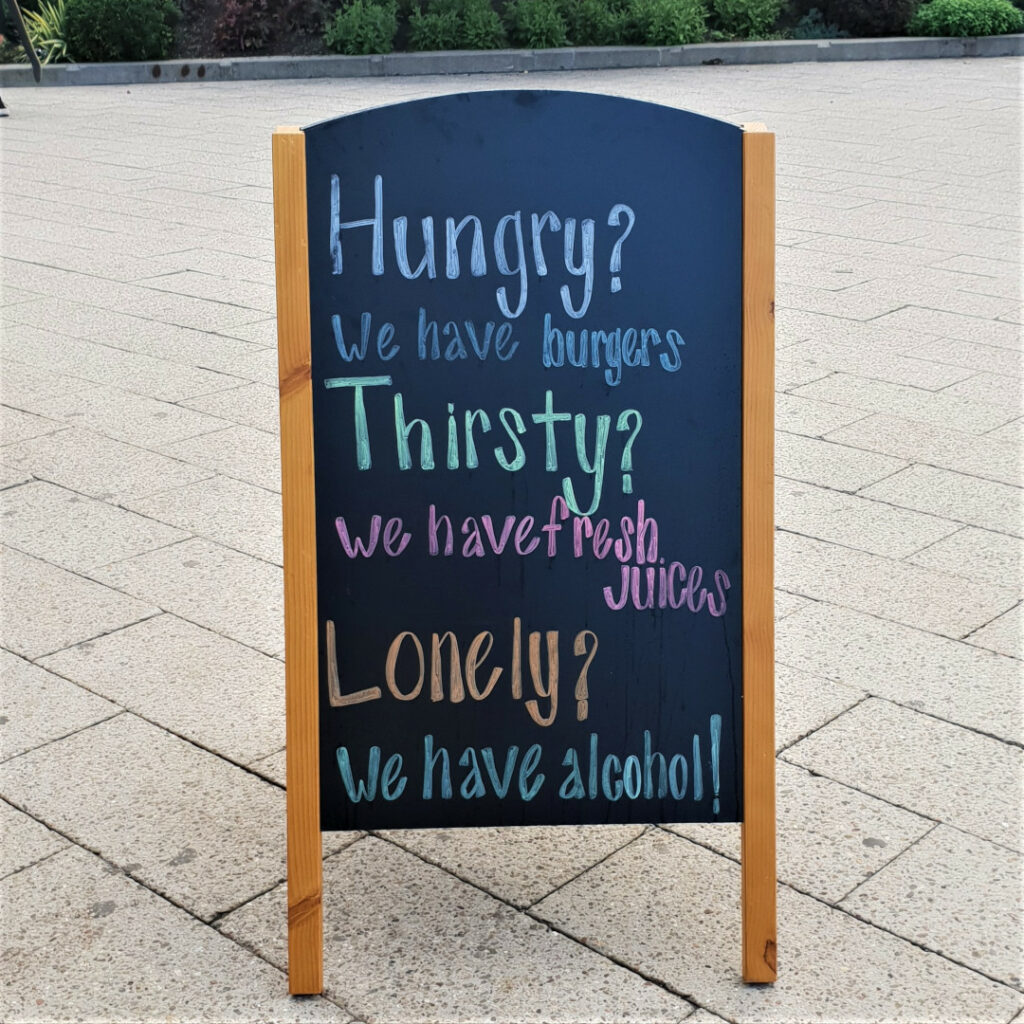 Hungry?
We have burgers
Thirsty?
We have fresh
juices
Lonely?
We have alcohol!